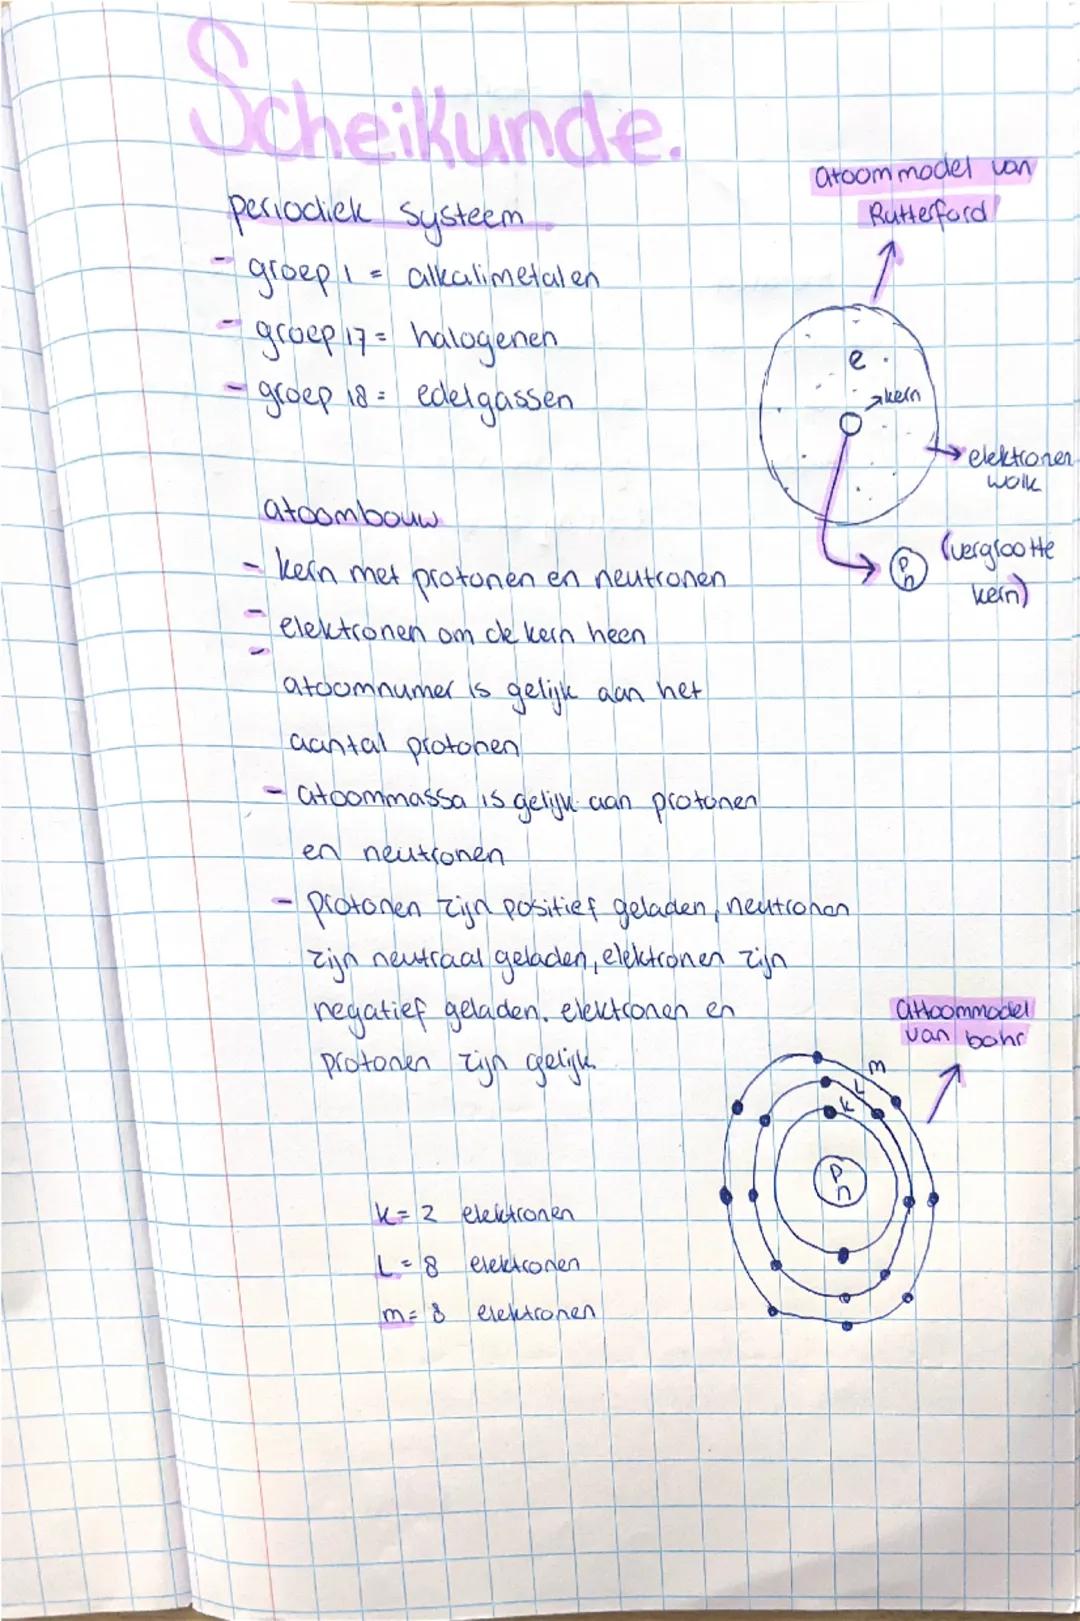 Scheikunde.
periodiek systeem
- groep 1 = alkalimetalen
- groep 17 = halogenen
- groep 18 = edelgassen
atoommodel van
Rutterford
e
kern
elektronen
wolk
p
n
(vergrootte
kern)
atoombouw
- kern met protonen en neutronen
- elektronen om de kern heen
-
atoomnumer is gelijk aan het
aantal protonen
- atoommassa is gelijk aan protonen
en neutronen
- protonen zijn positief geladen, neutronen
zijn neutraal geladen, elektronen zijn
negatief geladen. elektronen en
protonen zijn gelijk
attoommodel
van bohr
m
L
k
p
n
k= 2 elektronen
L = 8 elektronen
m= 8 elektronen